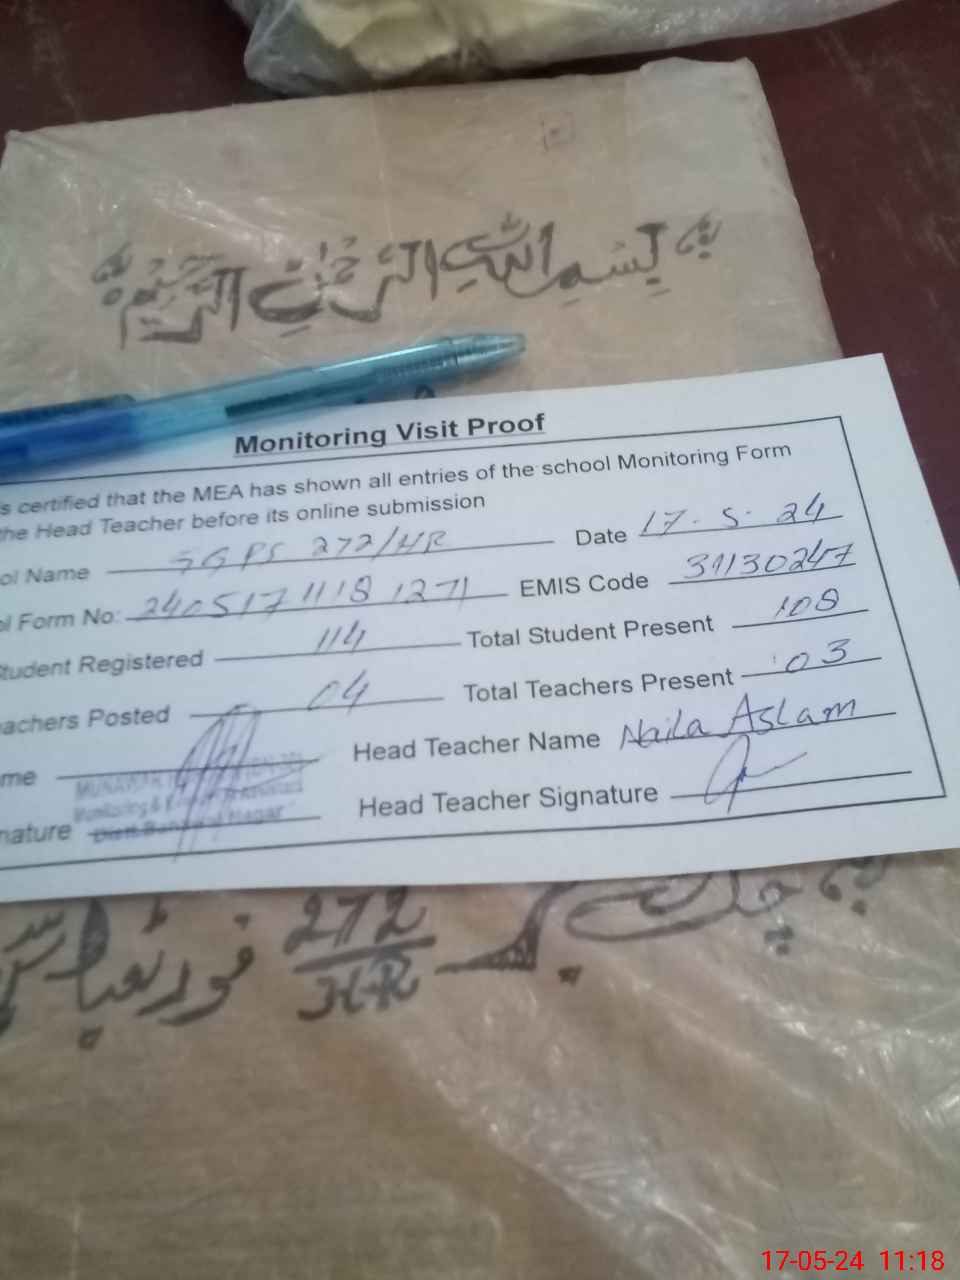 بسم اللہ الرحمٰن الرحیم
Monitoring Visit Proof
s certified that the MEA has shown all entries of the school Monitoring Form
the Head Teacher before its online submission
ol Name GGPS 272/HR Date 17-5-24
ol Form No: 2405171118 1271 EMIS Code 31130247
tudent Registered 114 Total Student Present 108
achers Posted 04 Total Teachers Present 03
me Head Teacher Name Naila Aslam
nature Head Teacher Signature
Monitoring &
چک 272/HR فورٹ عباس
17-05-24 11:18